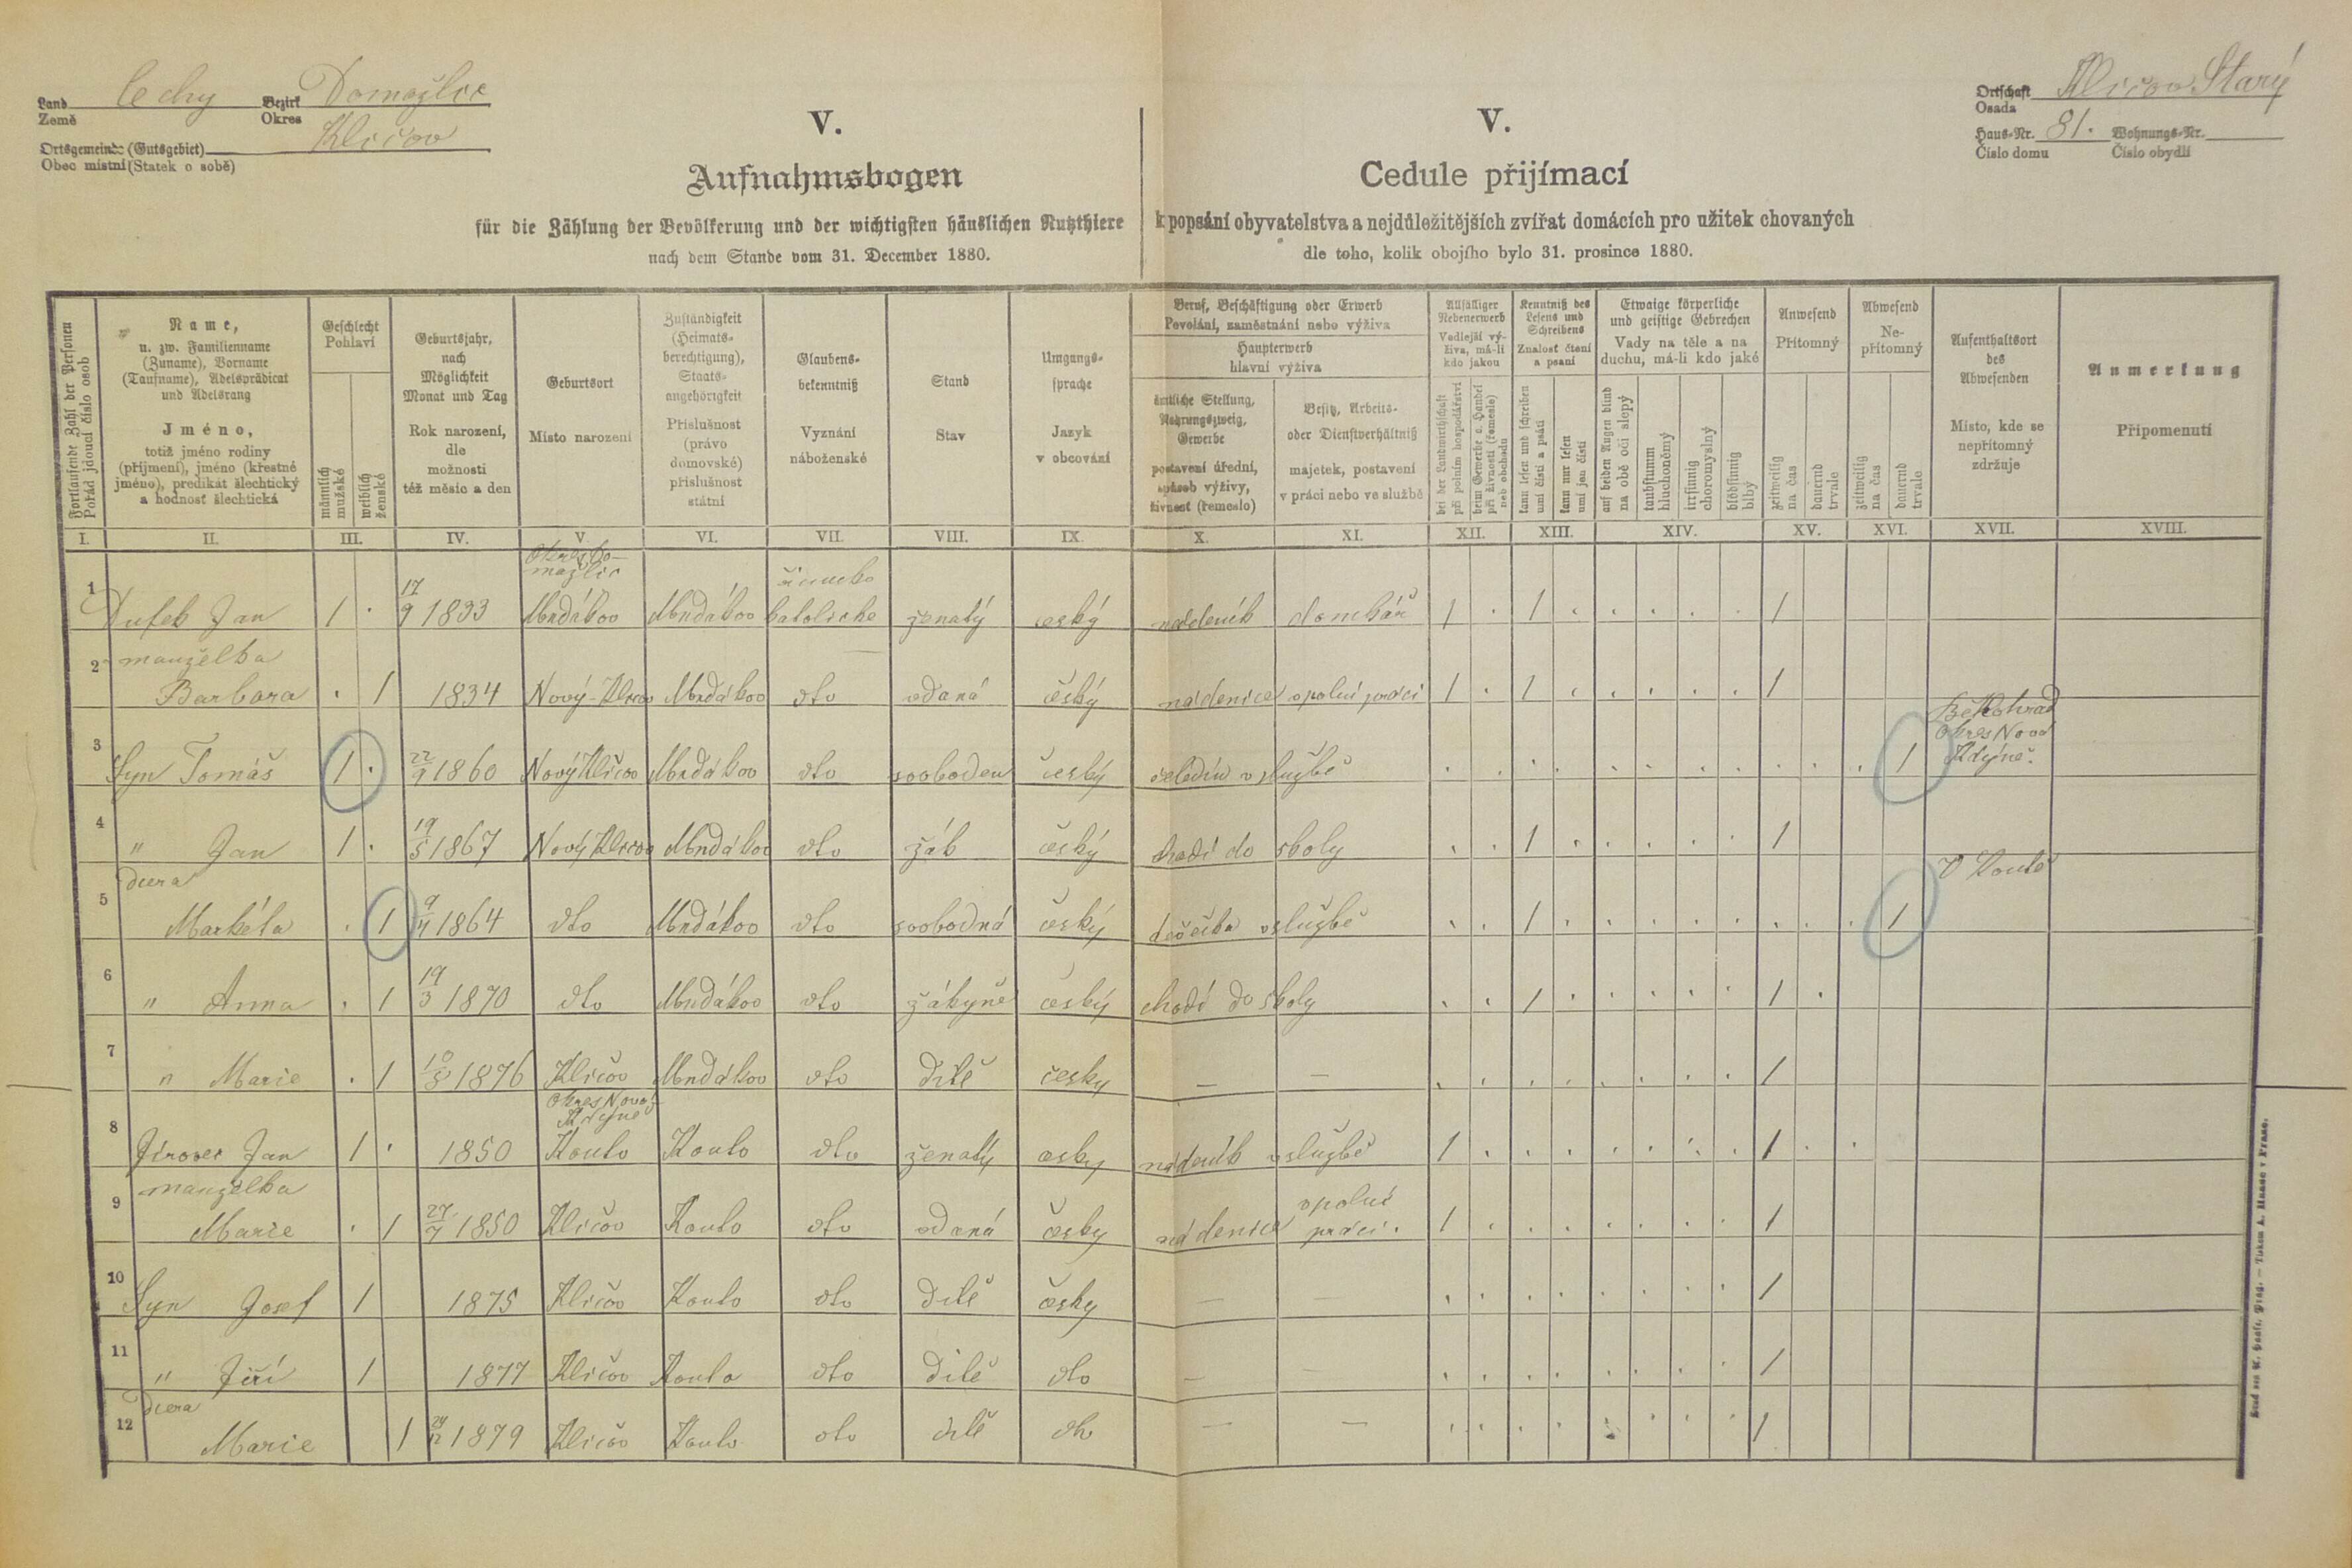 Land Čechy Bezirk Domažlic
Země Okres
Ortsgemeinde (Gutsgebiet) Kličov
Obec místní (Statek o sobě)
V.
Aufnahmsbogen
für die Zählung der Bevölkerung und der wichtigsten häuslichen Nutzthiere
nach dem Stande vom 31. December 1880.
V.
Cedule přijímací
k popsání obyvatelstva a nejdůležitějších zvířat domácích pro užitek chovaných
dle toho, kolik obojího bylo 31. prosince 1880.
Ortschaft Kličov Starý
Osada
Haus-Nr. 81. Wohnungs-Nr.
Číslo domu Číslo obydlí
Fortlaufende Zahl der Personen
Pořád jdoucí číslo osob
Name,
u. zw. Familienname
(Zuname), Vorname
(Taufname), Adelsprädicat
und Adelsrang
Jméno,
totiž jméno rodiny
(příjmení), jméno (křestné
jméno), predikát šlechtický
a hodnost šlechtická
Geschlecht
Pohlaví
männlich
mužské
weiblich
ženské
Geburtsjahr,
nach
Möglichkeit
Monat und Tag
Rok narození,
dle
možnosti
též měsíc a den
Geburtsort
Místo narození
Zuständigkeit
(Heimats-
berechtigung),
Staats-
angehörigkeit
Příslušnost
(právo
domovské)
příslušnost
státní
Glaubens-
bekenntniß
Vyznání
náboženské
Stand
Stav
Umgangs-
sprache
Jazyk
v obcování
Beruf, Beschäftigung oder Erwerb
Povolání, zaměstnání nebo výživa
Haupterwerb
hlavní výživa
ämtliche Stellung,
Nahrungszweig,
Gewerbe
postavení úřední,
spůsob výživy,
živnosť (řemeslo)
Besitz, Arbeits-
oder Dienstverhältniß
majetek, postavení
v práci nebo ve službě
Allfälliger
Nebenerwerb
Vedlejší vý-
živa, má-li
kdo jakou
bei der Landwirthschaft
při polním hospodářství
beim Gewerbe o. Handel
při živnosti (řemesle)
neb obchodu
Kenntniß des
Lesens und
Schreibens
Znalosť čtení
a psaní
kann lesen und schreiben
umí čísti a psáti
kann nur lesen
umí jen čísti
Etwaige körperliche
und geistige Gebrechen
Vady na těle a na
duchu, má-li kdo jaké
auf beiden Augen blind
na obě oči slepý
taubstumm
hluchoněmý
irrsinnig
choromyslný
blödsinnig
blbý
Anwesend
Přítomný
zeitweilig
na čas
dauernd
trvale
Abwesend
Ne-
přítomný
zeitweilig
na čas
dauernd
trvale
Aufenthaltsort
des
Abwesenden
Místo, kde se
nepřítomný
zdržuje
Anmerkung
Připomenutí
I. II. III. IV. V. VI. VII. VIII. IX. X. XI. XII. XIII. XIV. XV. XVI. XVII. XVIII.
Okres Do-
mažlic římsko
1 Dufek Jan 1 . 17/9 1833 Mrdákov Mrdákov katolické ženatý český nádeník domkář 1 . 1 . . . . . 1
manželka
2 Barbora . 1 1834 Nový-Kličov Mrdákov dto vdaná český nádenice v polní práci 1 . 1 . . . . . 1
Bělohrad
okres Nová
3 Syn Tomáš 1 . 22/9 1860 Nový Kličov Mrdákov dto svoboden český čeledín v službě . . . . . . . . . . . 1 Kdýně.
4 " Jan 1 . 19/5 1867 Nový Kličov Mrdákov dto žák český chodí do školy . . 1 . . . . . 1
dcera V Koutě
5 Markéta . 1 9/4 1864 dto Mrdákov dto svobodná český děvečka v službě . . 1 . . . . . . . . 1
6 " Anna . 1 19/3 1870 dto Mrdákov dto žákyně český chodí do školy . . 1 . . . . . 1 .
7 " Marie . 1 10/5 1876 Kličov Mrdákov dto dítě česky — — . . . . . . . . 1
okres Nová
Kdyně
8 Jírovec Jan 1 . 1850 Kouto Kouto dto ženatý česky nádeník v službě 1 . . . . . . . 1 . .
manželka v polní
9 Marie . 1 27/7 1850 Kličov Kouto dto vdaná česky nádenice práci. 1 . . . . . . . 1
10 Syn Josef 1 1875 Kličov Kouto dto dítě česky — — . . . . . . . . 1
11 " Jiří 1 1877 Kličov Kouto dto dítě dto — — . . . . . . . . 1
dcera
12 Marie 1 29/12 1879 Kličov Kouto dto dítě dto — — . . . . . . . . 1
Druck von A. Haase, Prag. — Tiskem A. Haase v Praze.